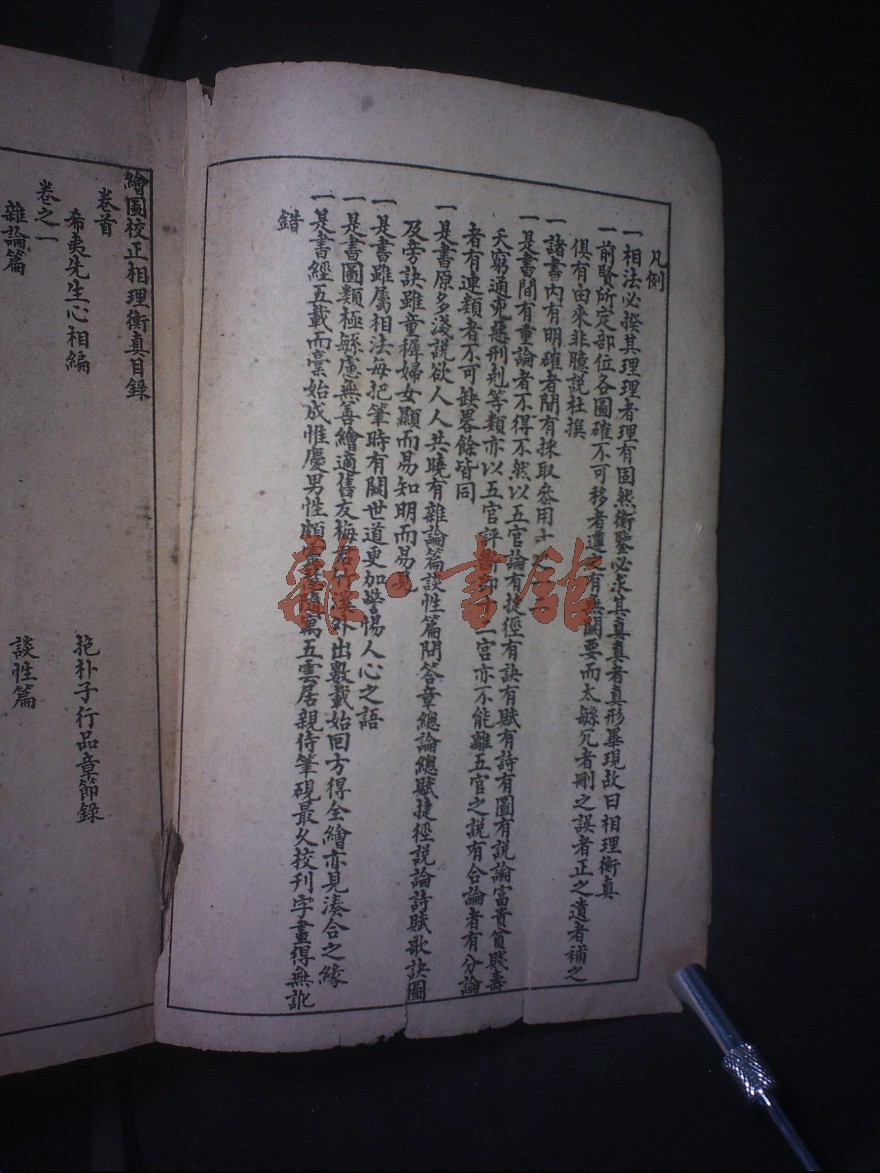 凡例
一相法必揆其理理者理有固然衡鑒必求其真真者真形畢現故曰相理衡真
一前賢所定部位各圖確不可移者遵之有無關要而太緐冗者刪之誤者正之遺者補之
俱有由來非臆說杜撰
一諸書內有明確者間有採取叅用十之
一是書間有重論者不得不然以五官論有捷徑有訣有賦有詩有圖有說論富貴貧賤壽
夭窮通兇惡刑剋等類亦以五官評斷即一宮亦不能離五官之說有合論者有分論
者有連類者不可缺畧餘皆同
一是書原多淺說欲人人共曉有雜論篇談性篇問答章總論總賦捷徑說論詩賦歌訣圖
及旁訣雖童穉婦女顯而易知明而易見
一是書雖屬相法每把筆時有關世道更加警惕人心之語
一是書圖類極緐慮無善繪適舊友梅君外出數載始回方得全繪亦見湊合之緣
一是書經五載而稾始成惟慶男性頗寓五雲居親侍筆硯最久校刊字畫得無訛
錯
繪圖校正相理衡真目錄
卷首
希夷先生心相編
抱朴子行品章節錄
卷之一
雜論篇
談性篇
雜·書館